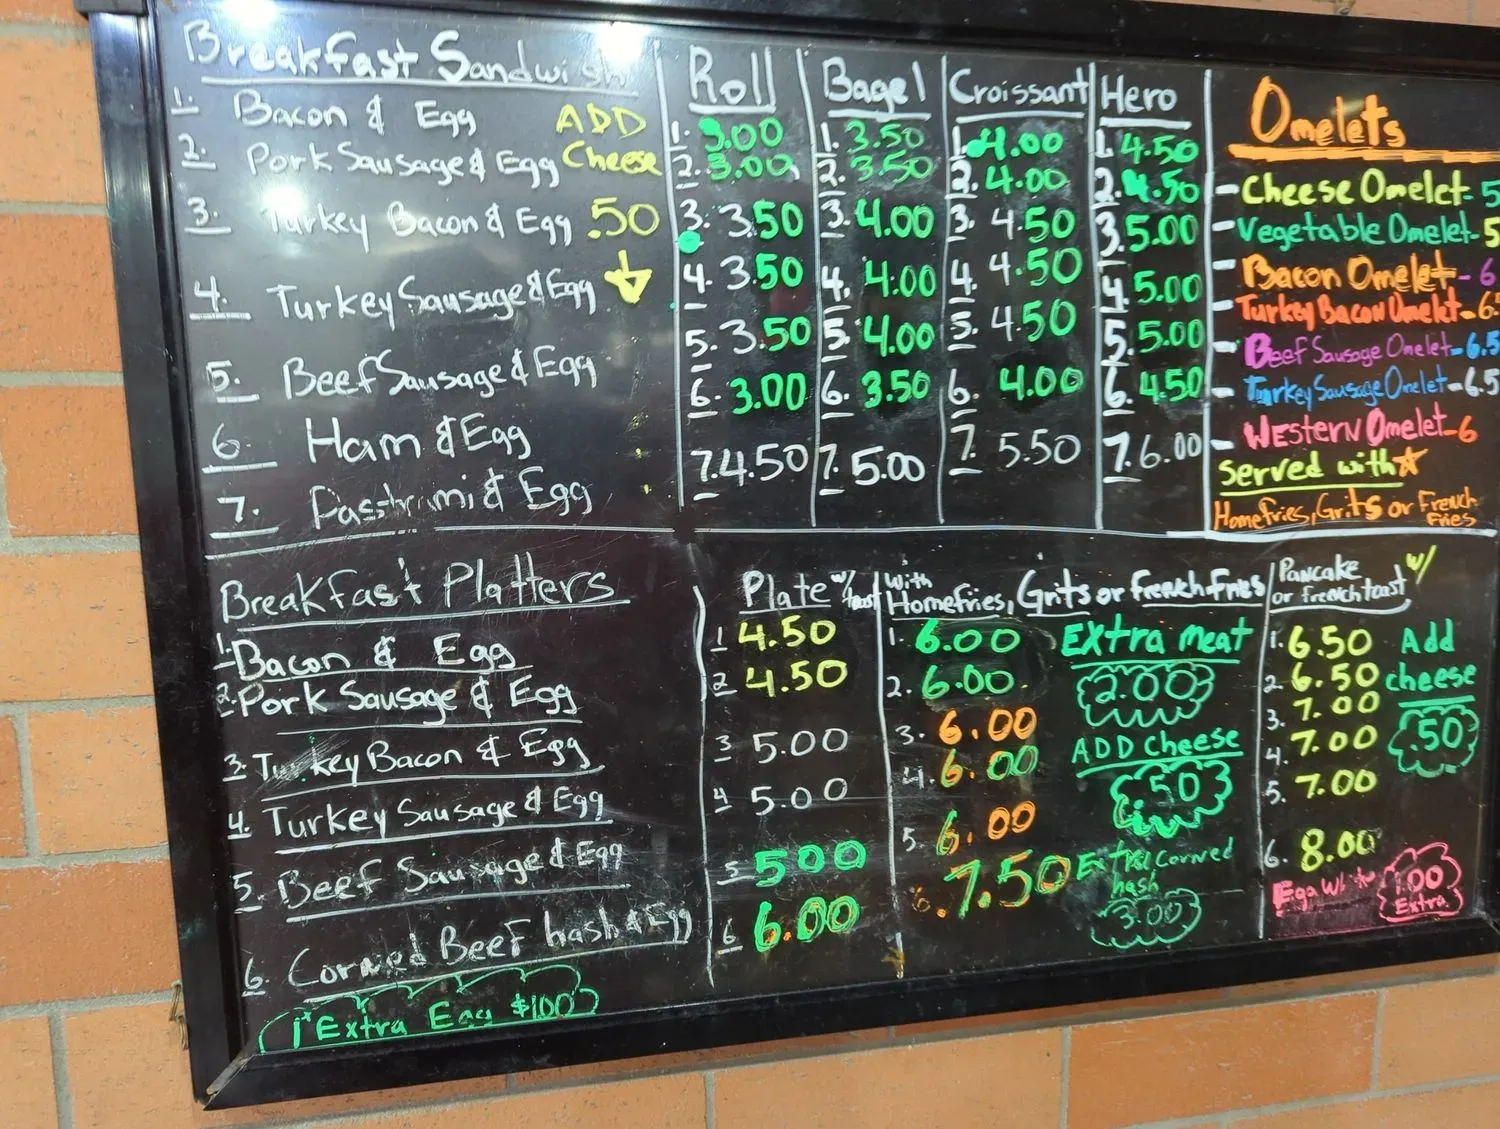 Breakfast Sandwish
1. Bacon & Egg
2. Pork Sausage & Egg
3. Turkey Bacon & Egg
4. Turkey Sausage & Egg
5. Beef Sausage & Egg
6 Ham & Egg
7. Pastrami & Egg
ADD
Cheese
.50
Roll
1. 3.00
2. 3.00
3. 3.50
4. 3.50
5. 3.50
6. 3.00
7. 4.50
Bagel
1. 3.50
2. 3.50
3. 4.00
4. 4.00
5. 4.00
6. 3.50
7. 5.00
Croissant
1. 4.00
2. 4.00
3. 4.50
4. 4.50
5. 4.50
6. 4.00
7. 5.50
Hero
1. 4.50
2. 4.50
3. 5.00
4. 5.00
5. 5.00
6. 4.50
7. 6.00
Omelets
- Cheese Omelet - 5
- Vegetable Omelet - 5
- Bacon Omelet - 6
- Turkey Bacon Omelet - 6.
- Beef Sausage Omelet - 6.5
- Turkey Sausage Omelet - 6.5
- Western Omelet - 6
Served with
Homefries, Grits or French
Fries
Breakfast Platters
1. Bacon & Egg
2. Pork Sausage & Egg
3. Turkey Bacon & Egg
4. Turkey Sausage & Egg
5. Beef Sausage & Egg
6. Corned Beef hash & Egg
1* Extra Egg $1.00
Plate w/ toast
1 4.50
2 4.50
3 5.00
4 5.00
5 500
6 6.00
With
Homefries, Grits or french fries
1. 6.00
2. 6.00
3. 6.00
4. 6.00
5. 6.00
6. 7.50
Extra meat
2.00
ADD Cheese
.50
Extra Corned
hash
3.00
Pancake w/
or french toast
1. 6.50
2. 6.50
3. 7.00
4. 7.00
5. 7.00
6. 8.00
Add
cheese
.50
Egg White
1.00
Extra